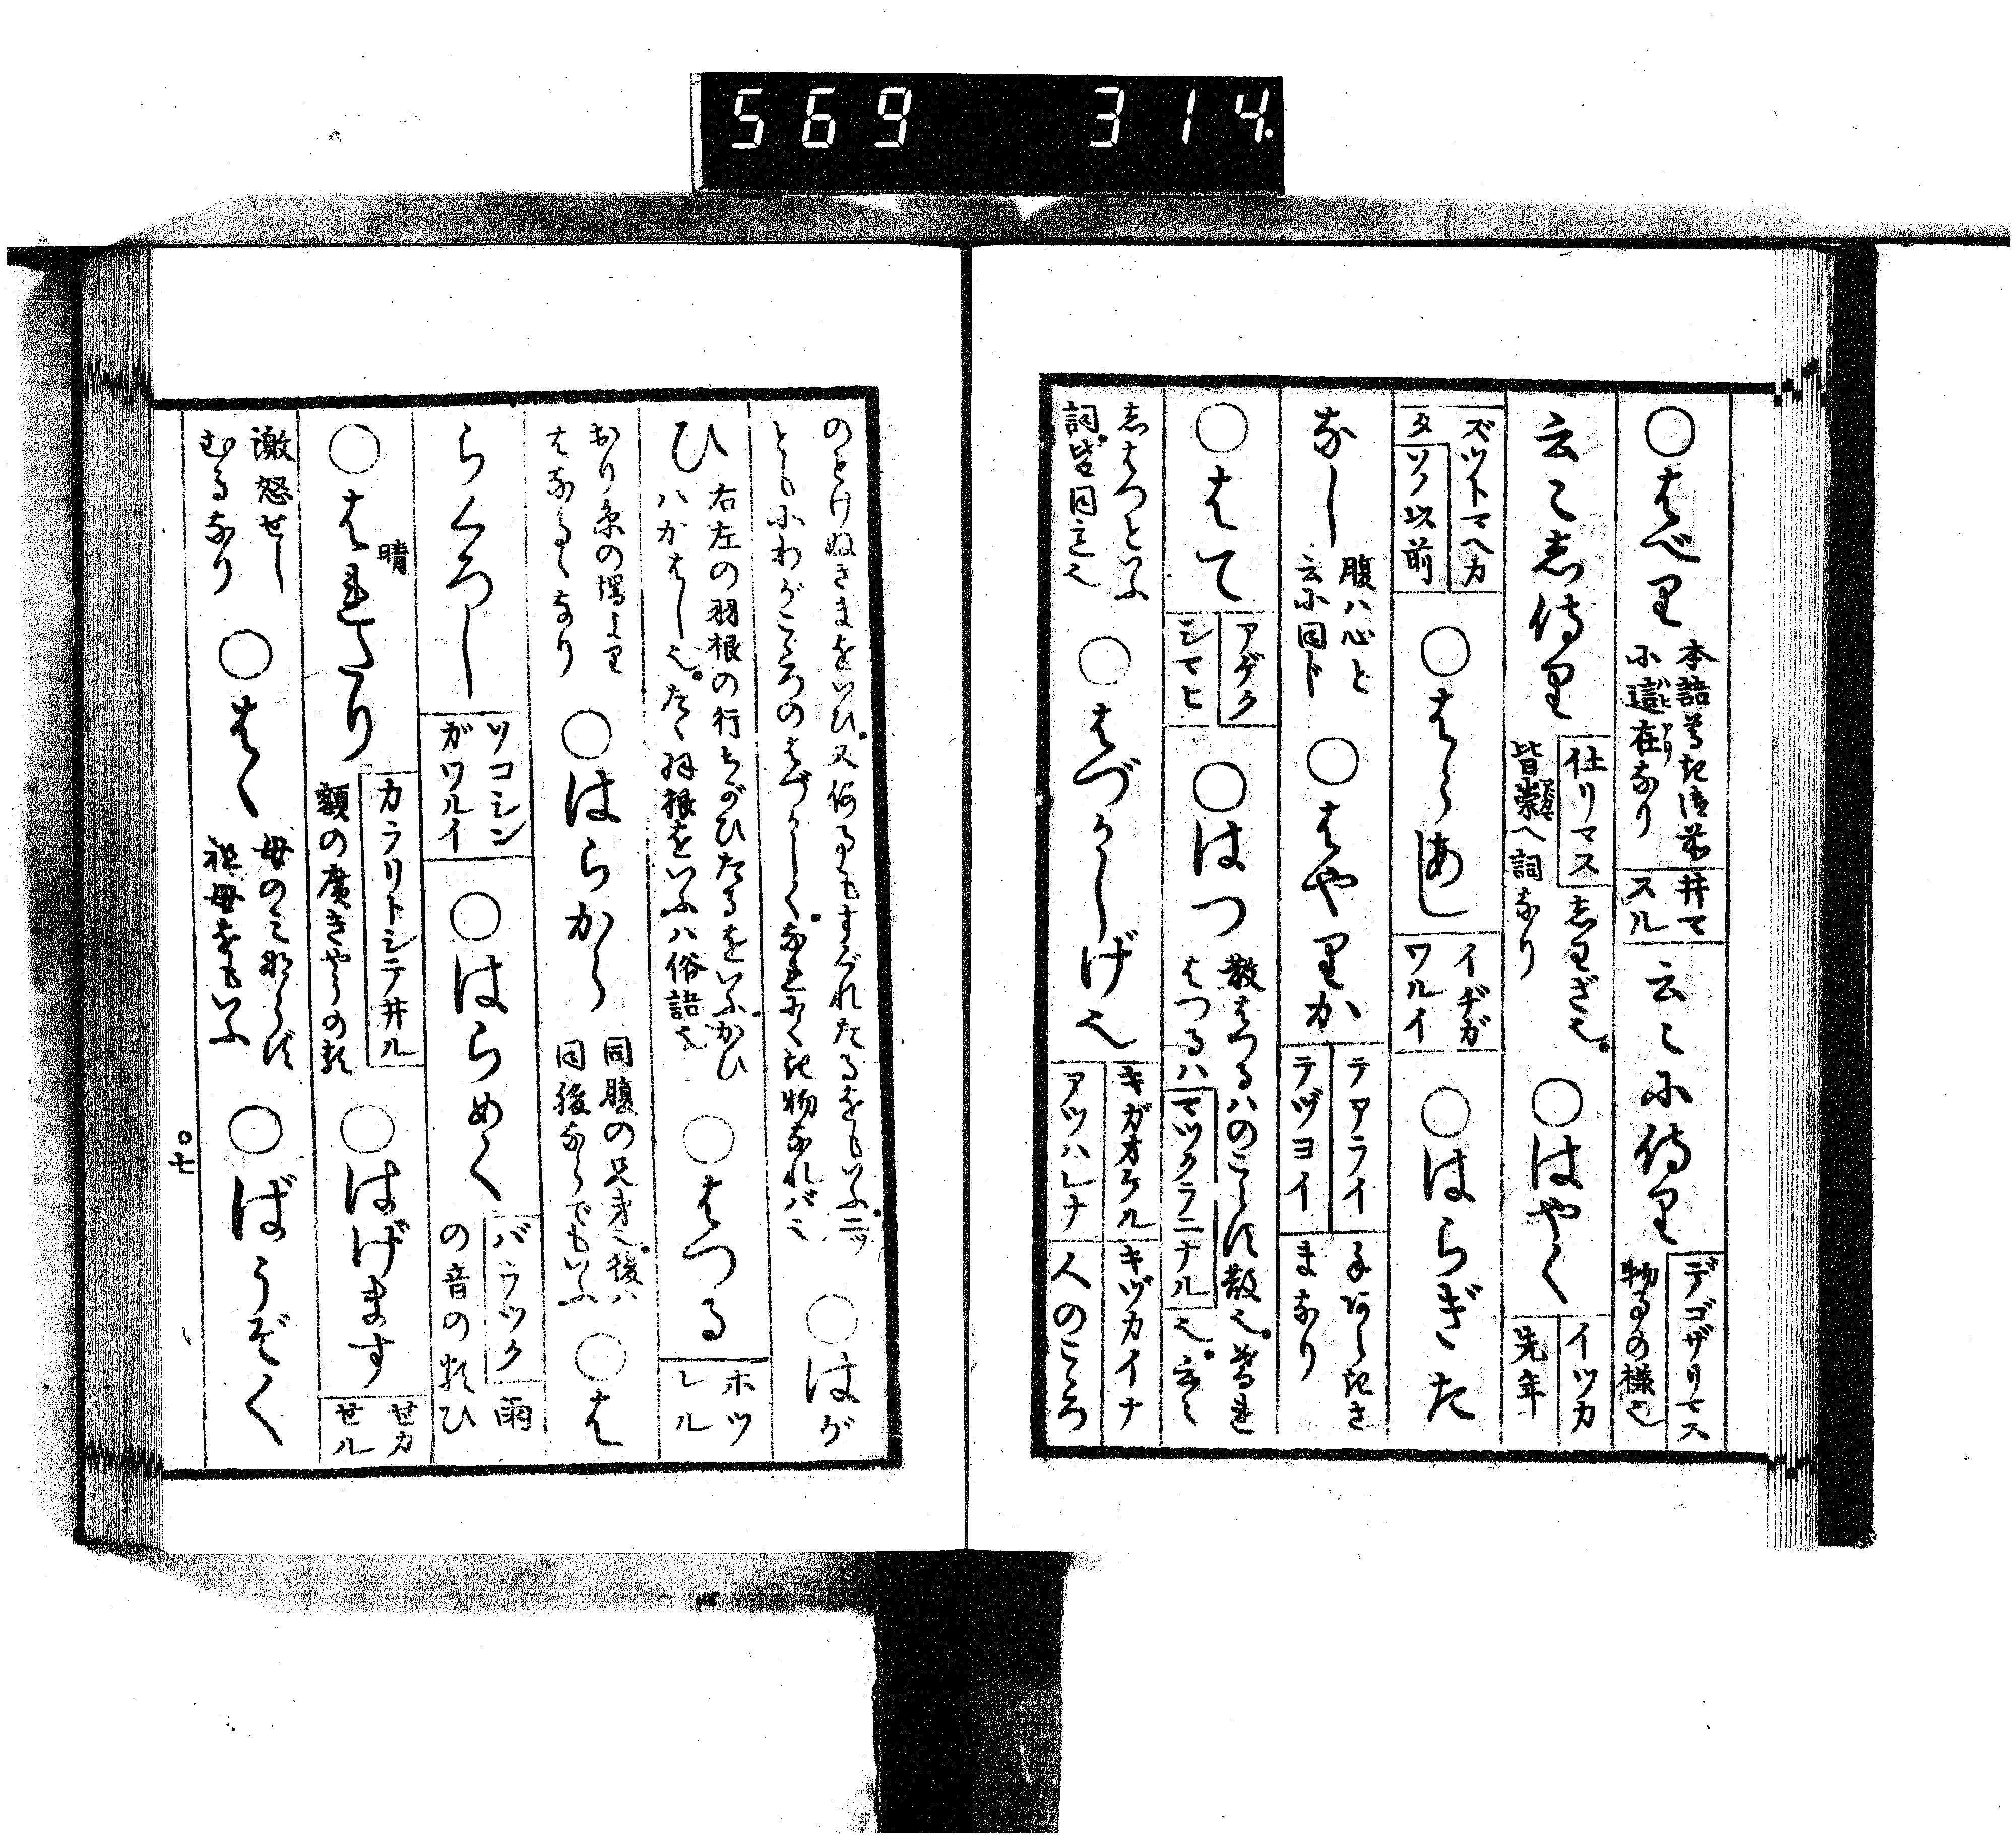 569 314.
○はべり 本語は尊き御前に這在なり ハヒアリ 井マスル 云々に侍り デゴザリマス 物事の様也
云々し侍り 仕リマス しわざ也。皆崇へ詞なり ○はやく イツカ 先年
ズツトマヘカタ ソノ以前 ○はらあし イヂガワルイ ○はらぎた
なし 腹ハ心と云に同ド ○はやりか テアライ テヅヨイ 手あらきさまなり
○はて アゲク シマヒ ○はつ 散はつるハのこらず散也。暮れはつるハマツクラニナル也。云々
しはつといふ詞。皆同意也 ○はづかしげ也 キガオケル キヅカイナ アツハレナ 人のこゝろ
のとけぬさまをいひ。又何事もすぐれたるをもいふ。二ツともにわがこゝろのはづかしく。なれにくき物なれバ也 ○はが
ひ 右左の羽根の行ちがひたるをいふ。かひハかはし也。たゞ羽根をいふハ俗語也 ○はつる ホツレル
おり糸の端よりはなるゝなり ○はらから 同腹の兄弟也。後ハ同腹ならでもいふ ○は
らくろし ツコシンガワルイ ○はらめく バラツク 雨の音の類ひ
○はれたり 晴 カラリトシテ井ル 額の廣きやうの類 ○はげます せカセル
激怒せしむるなり ○はゝ 母のみならず祖母をもいふ ○ばうぞく
○七